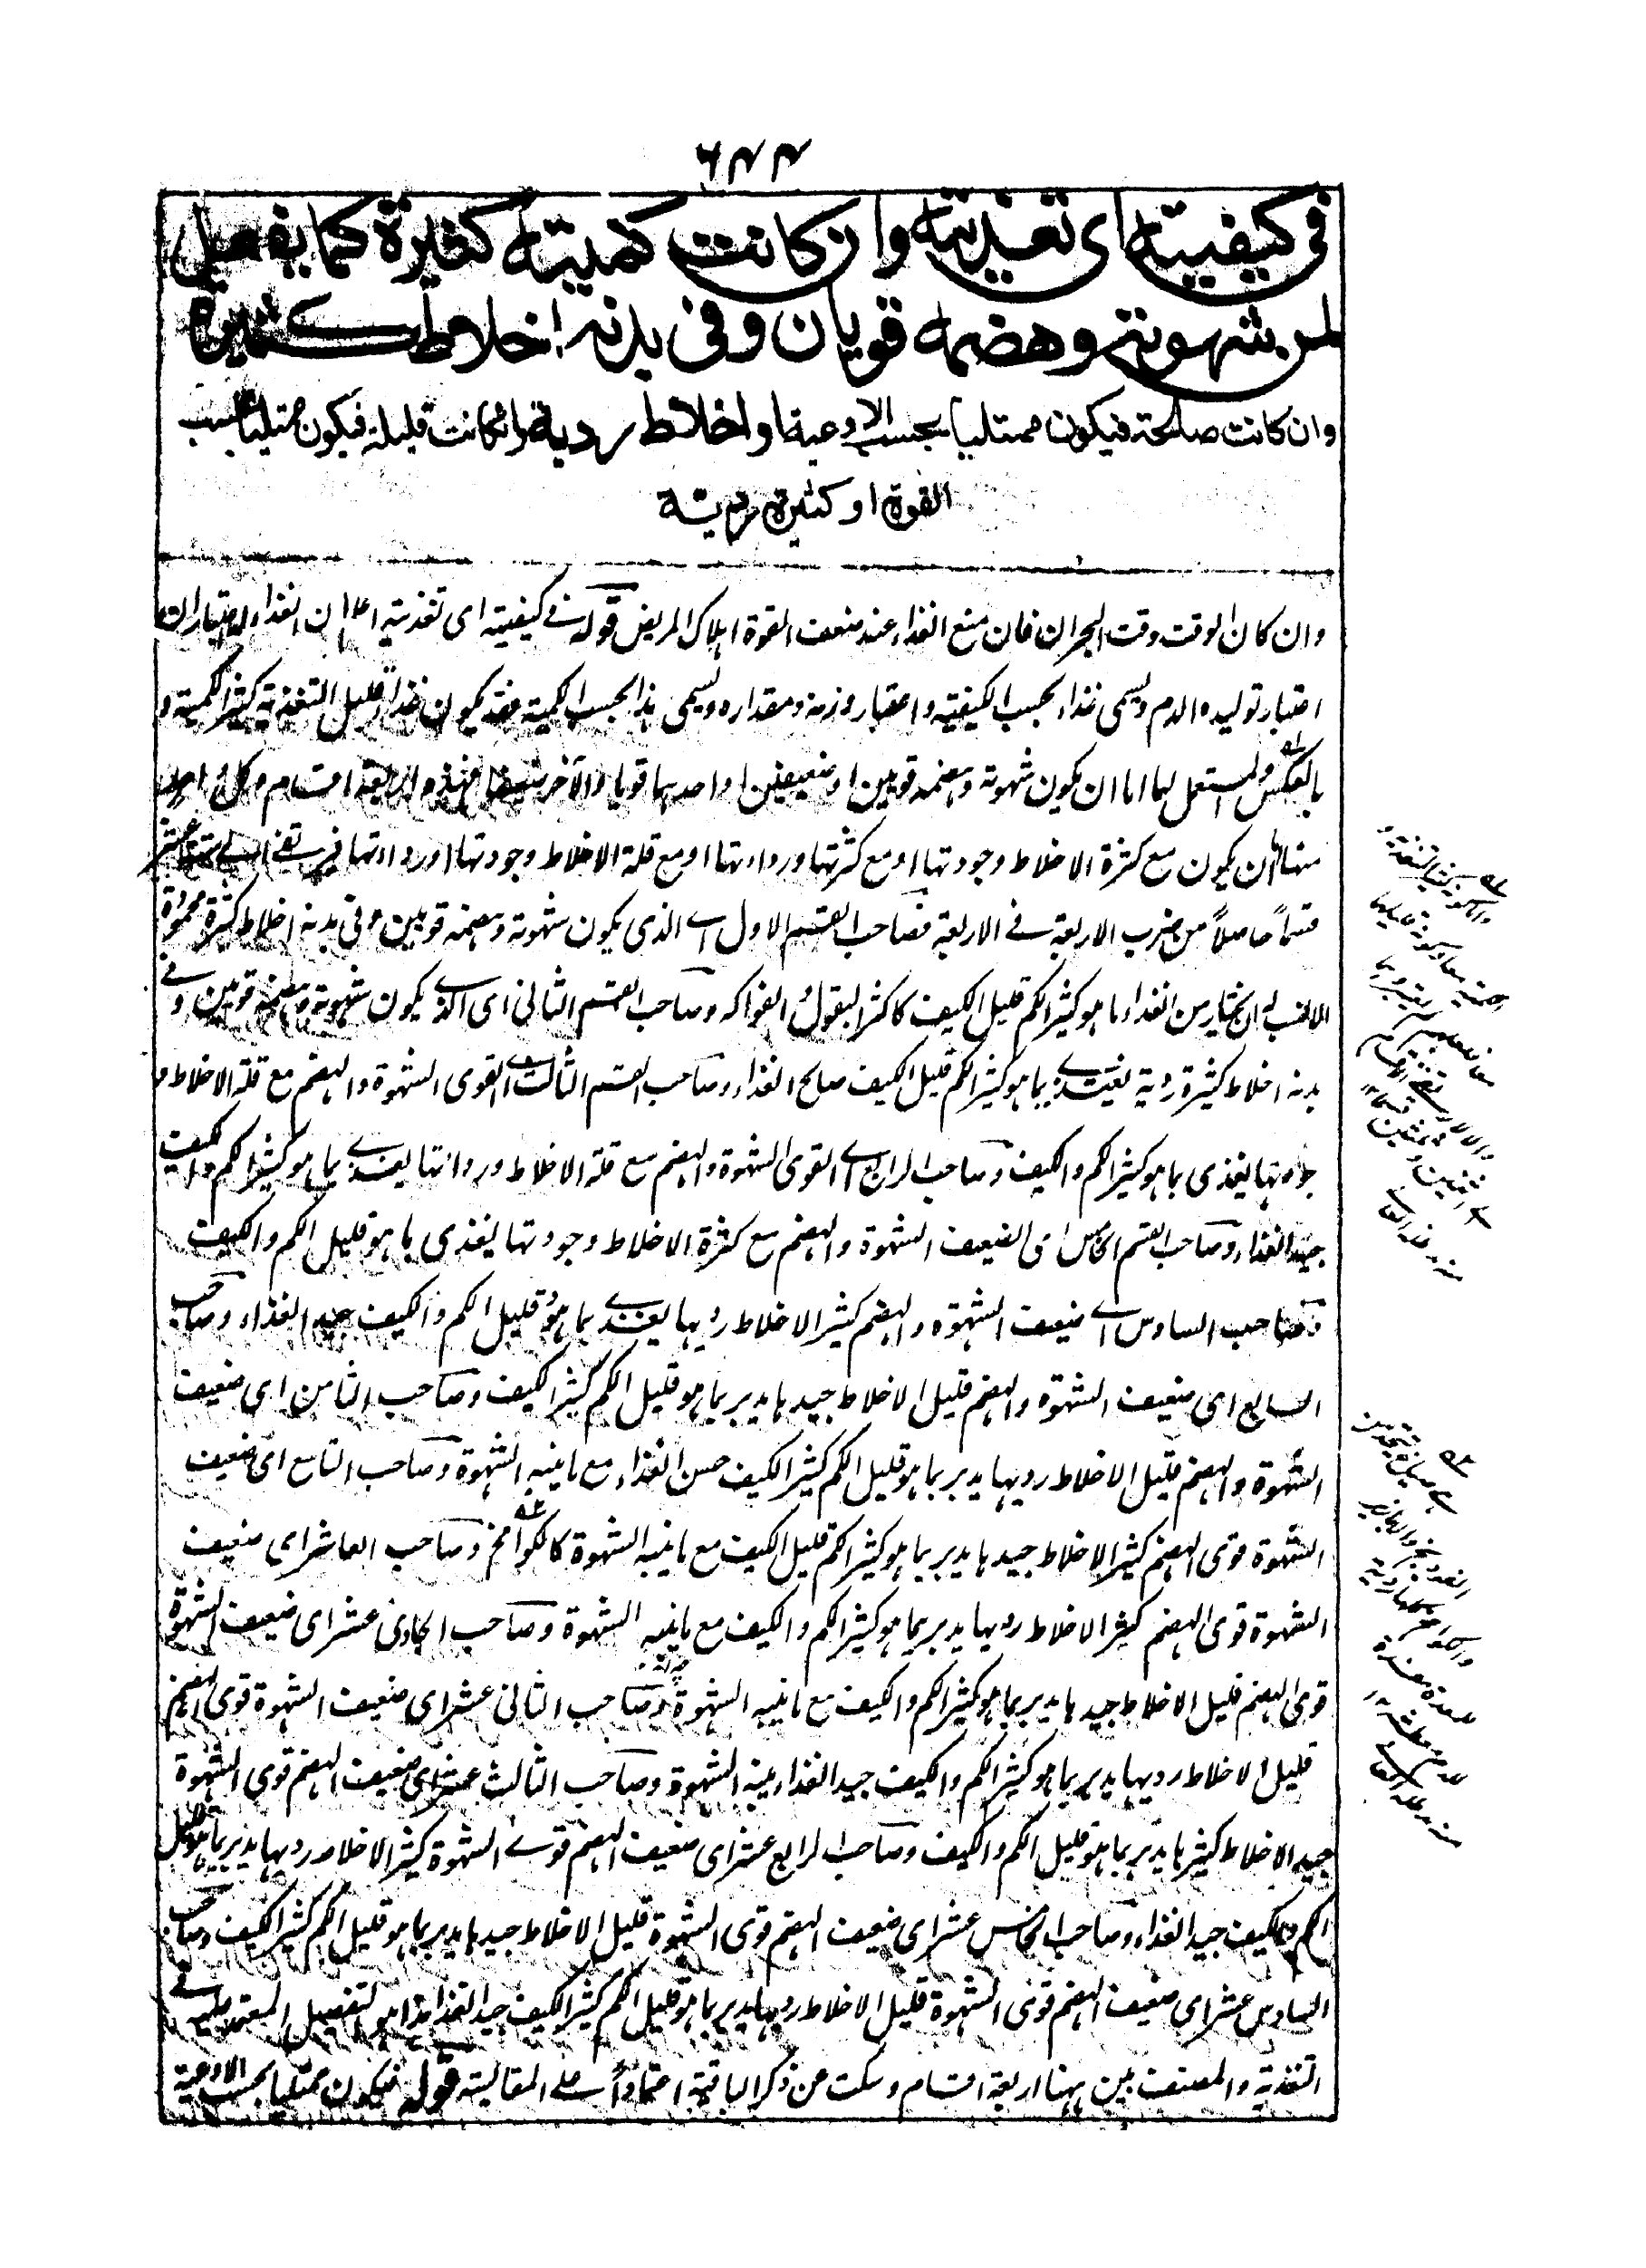 ٦٣٣
في كيفيته اى تغذيته وان كانت كميته كثيرة كما يفعل
لمن شهوته وهضمه قويان وفى بدنه اخلاط كثيرة
وان كانت صالحة فيكون ممتليا بحسب الاوعية او اخلاط ردية وانكانت قليلة فيكون ممتليا بحسب
القوة او كثيرة ردية
وان كان الوقت وقت البحران فان منع الغذاء عند ضعف القوة اهلاك المريض قوله فى كيفيته اى تغذيته اعلم ان الغذاء له اعتباران
اعتبار توليده الدم ويسمى غذاء بحسب الكيفية واعتبار وزنه ومقداره ويسمى هذا بحسب الكمية فقد يكون غذاء قليل التغذية كثير الكمية و
بالعكس والمستعمل لها اما ان يكون شهوته وهضمه قويين او ضعيفين او احدهما قويا والآخر ضعيفا فهذه اربعة اقسام وكل واحد
منها اما ان يكون مع كثرة الاخلاط وجودتها او مع كثرتها ورداءتها او مع قلة الاخلاط وجودتها او رداءتها فيرتقى الى ستة عشر
قسماً حاصلاً من ضرب الاربعة فى الاربعة فصاحب القسم الاول اى الذى يكون شهوته وهضمه قويين وفى بدنه اخلاط كثيرة محمودة
الانسب له ان يختار من الغذاء ما هو كثير الكم قليل الكيف كاكثر البقول والفواكه وصاحب القسم الثانى اى الذى يكون شهوته وهضمه قويين وفى
بدنه اخلاط كثيرة ردية يغتذى بما هو كثير الكم قليل الكيف صالح الغذاء وصاحب القسم الثالث اى القوى الشهوة والهضم مع قلة الاخلاط و
جودتها يغذى بما هو كثير الكم والكيف وصاحب الرابع اى القوى الشهوة والهضم مع قلة الاخلاط ورداءتها يغذى بما هو كثير الكم والكيف
جيد الغذاء وصاحب القسم الخامس اى الضعيف الشهوة والهضم مع كثرة الاخلاط وجودتها يغذى بما هو قليل الكم والكيف
وصاحب السادس اى ضعيف الشهوة والهضم كثير الاخلاط رديها يغذى بما هو قليل الكم والكيف جيد الغذاء وصاحب
السابع اى ضعيف الشهوة والهضم قليل الاخلاط جيدها يدبر بما هو قليل الكم كثير الكيف وصاحب الثامن اى ضعيف
الشهوة والهضم قليل الاخلاط رديها يدبر بما هو قليل الكم كثير الكيف حسن الغذاء مع ما ينبه الشهوة وصاحب التاسع اى ضعيف
الشهوة قوى الهضم كثير الاخلاط جيدها يدبر بما هو كثير الكم قليل الكيف مع ما ينبه الشهوة كالكوامخ وصاحب العاشر اى ضعيف
الشهوة قوى الهضم كثير الاخلاط رديها يدبر بما هو كثير الكم والكيف مع ما ينبه الشهوة وصاحب الحادى عشر اى ضعيف الشهوة
قوى الهضم قليل الاخلاط جيدها يدبر بما هو كثير الكم والكيف مع ما ينبه الشهوة وصاحب الثانى عشر اى ضعيف الشهوة قوى الهضم
قليل الاخلاط رديها يدبر بما هو كثير الكم والكيف جيد الغذاء ينبه الشهوة وصاحب الثالث عشر اى ضعيف الهضم قوى الشهوة
جيد الاخلاط كثيرها يدبر بما هو قليل الكم والكيف وصاحب الرابع عشر اى ضعيف الهضم قوى الشهوة كثير الاخلاط رديها يدبر بما هو قليل
الكم والكيف جيد الغذاء وصاحب الخامس عشر اى ضعيف الهضم قوى الشهوة قليل الاخلاط جيدها يدبر بما هو قليل الكم كثير الكيف وصاحب
السادس عشر اى ضعيف الهضم قوى الشهوة قليل الاخلاط رديها يدبر بما هو قليل الكم كثير الكيف جيد الغذاء هذا هو التفصيل المعتمد عليه فى
التغذية والمصنف بين ههنا اربعة اقسام وسكت عن ذكر الباقية اعتماداً على المقايسة قوله فيكون ممتليا بحسب الاوعية